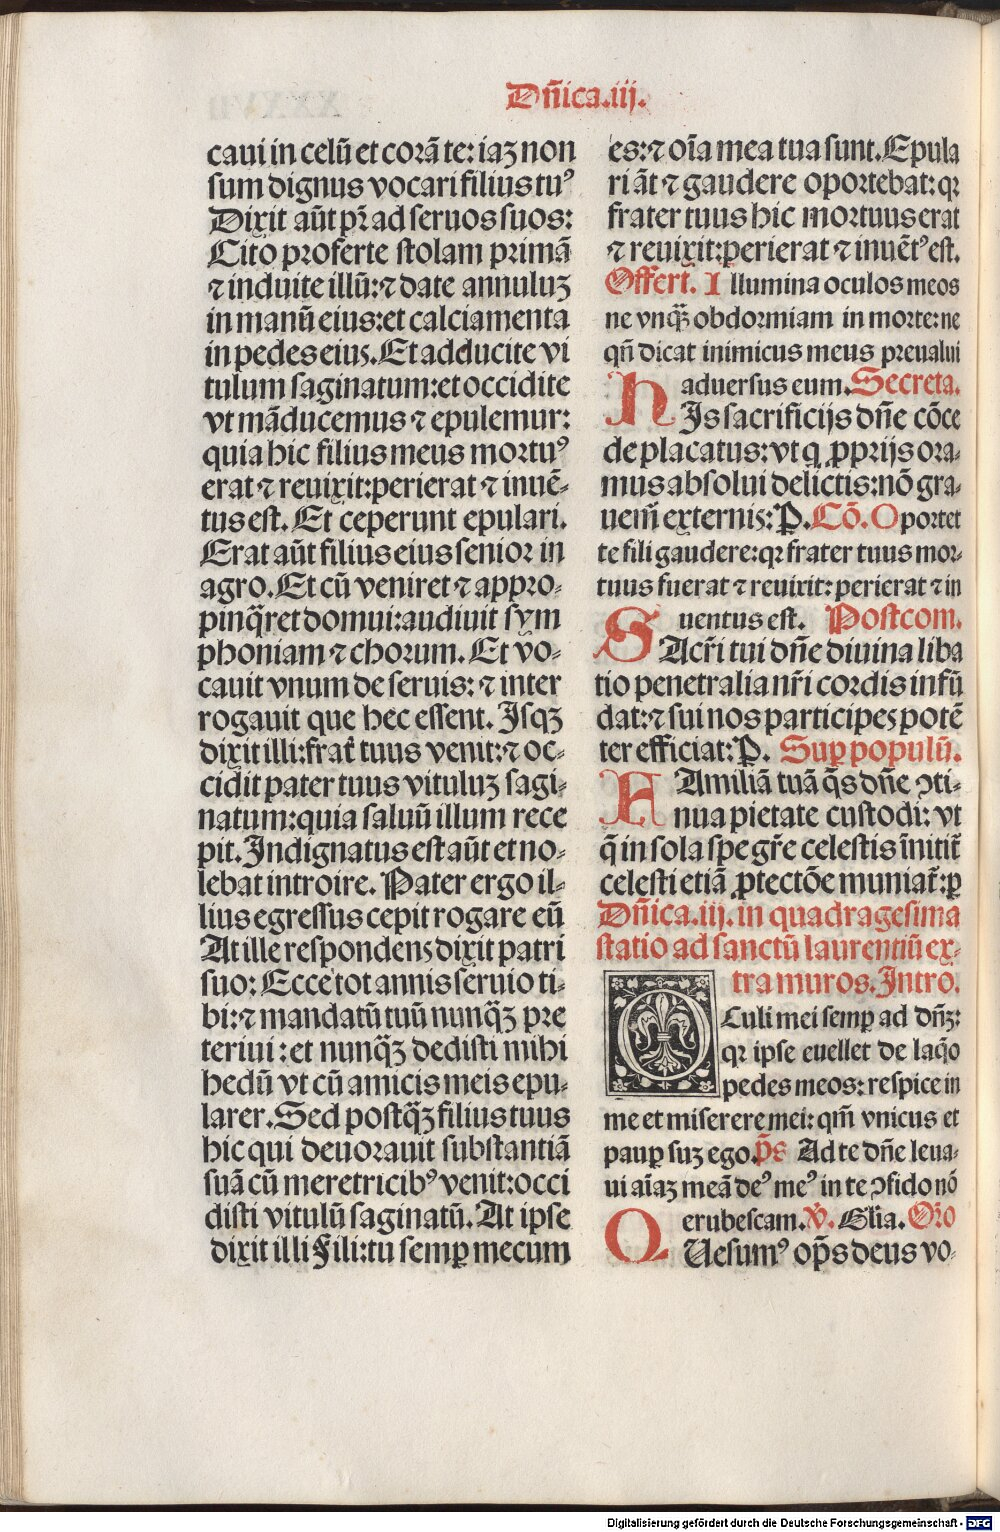 Dñica.iij.
caui in celũ et corã te: iaꝫ non
sum dignus vocari filius tuꝰ
Dixit aũt pr̃ ad seruos suos:
Cito proferte stolam primã
⁊ induite illũ: ⁊ date annuluꝫ
in manũ eius: et calciamenta
in pedes eius. Et adducite vi
tulum saginatum: et occidite
vt mãducemus ⁊ epulemur:
quia hic filius meus mortuꝰ
erat ⁊ reuixit: perierat ⁊ inuẽ-
tus est. Et ceperunt epulari.
Erat aũt filius eius senior in
agro. Et cũ veniret ⁊ appro-
pinq̃ret domui: audiuit sym
phoniam ⁊ chorum. Et vo-
cauit vnum de seruis: ⁊ inter
rogauit que hec essent. Isqꝫ
dixit illi: frat̃ tuus venit: ⁊ oc-
cidit pater tuus vituluꝫ sagi-
natum: quia saluũ illum rece
pit. Indignatus est aũt et no-
lebat introire. Pater ergo il-
lius egressus cepit rogare eũ
At ille respondens dixit patri
suo: Ecce tot annis seruio ti-
bi: ⁊ mandatũ tuũ nunq̃ꝫ pre
teriui: et nunq̃ꝫ dedisti mihi
hedũ vt cũ amicis meis epu-
larer. Sed postq̃ꝫ filius tuus
hic qui deuorauit substantiã
suã cũ meretricibꝰ venit: occi
disti vitulũ saginatũ. At ipse
dixit illi Fili: tu semꝑ mecum
es: ⁊ oĩa mea tua sunt. Epula
ri ãt ⁊ gaudere oportebat: qꝛ
frater tuus hic mortuus erat
⁊ reuixit: perierat ⁊ inuẽtꝰ est.
Offert. Illumina oculos meos
ne vnq̃ꝫ obdormiam in morte: ne
qñ dicat inimicus meus preualui
aduersus eum. Secreta.
HIs sacrificijs dñe cõce
de placatus: vt q ꝓprijs ora-
mus absolui delictis: nõ gra-
uem̃ externis: P. Cõ. Oportet
te fili gaudere: qꝛ frater tuus mor-
tuus fuerat ⁊ reuixit: perierat ⁊ in
uentus est. Postcom.
SAcr̃i tui dñe diuina liba
tio penetralia nr̃i cordis infũ
dat: ⁊ sui nos participes potẽ
ter efficiat: P. Suꝑ populũ.
FAmiliã tuã q̃s dñe ↄti-
nua pietate custodi: vt
q̃ in sola spe gr̃e celestis ĩnitit̃
celesti etiã ꝓtectõe muniat̃: ꝑ
Dñica.iij. in quadragesima
statio ad sanctũ laurentiũ ex-
tra muros. Intro.
OCuli mei semꝑ ad dñꝫ:
qꝛ ipse euellet de laq̃o
pedes meos: respice in
me et miserere mei: qm̃ vnicus et
pauꝑ suꝫ ego. p̃s Ad te dñe leua-
ui aĩaꝫ meã deꝰ meꝰ in te ↄfido nõ
erubescam. v̾. Glĩa. Oro
QUesumꝰ oꝑ̃s deus vo-
Digitalisierung gefördert durch die Deutsche Forschungsgemeinschaft - DFG